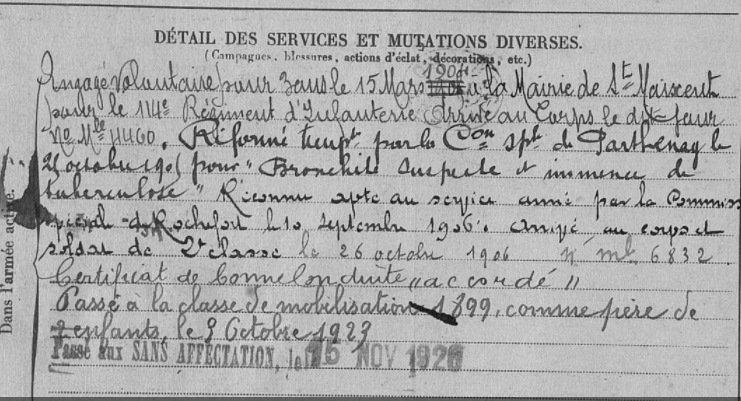 DÉTAIL DES SERVICES ET MUTATIONS DIVERSES.
(Campagnes, blessures, actions d'éclat, décorations, etc.)
Engagé Volontaire pour 3 ans le 15 Mars 1905 à la Mairie de St Maixent
pour le 114e Régiment d'Infanterie Arrivé au Corps le dit jour
No Mle 4460. Réformé tempt par la Con spt de Parthenay le
octobre 1905 pour "Bronchite suspecte et imminence de
tuberculose" Reconnu apte au service armé par la Commiss
spéciale de Rochefort le 10 septembre 1906. arrivé au corps et
soldat de 2e classe le 26 octobre 1906 no mle 6832.
Certificat de Bonne Conduite "accordé"
Passé à la classe de mobilisation 1899, comme père de
2 enfants, le 9 Octobre 1923
Passé aux SANS AFFECTATION, le 15 NOV 1926
Dans l'armée active.